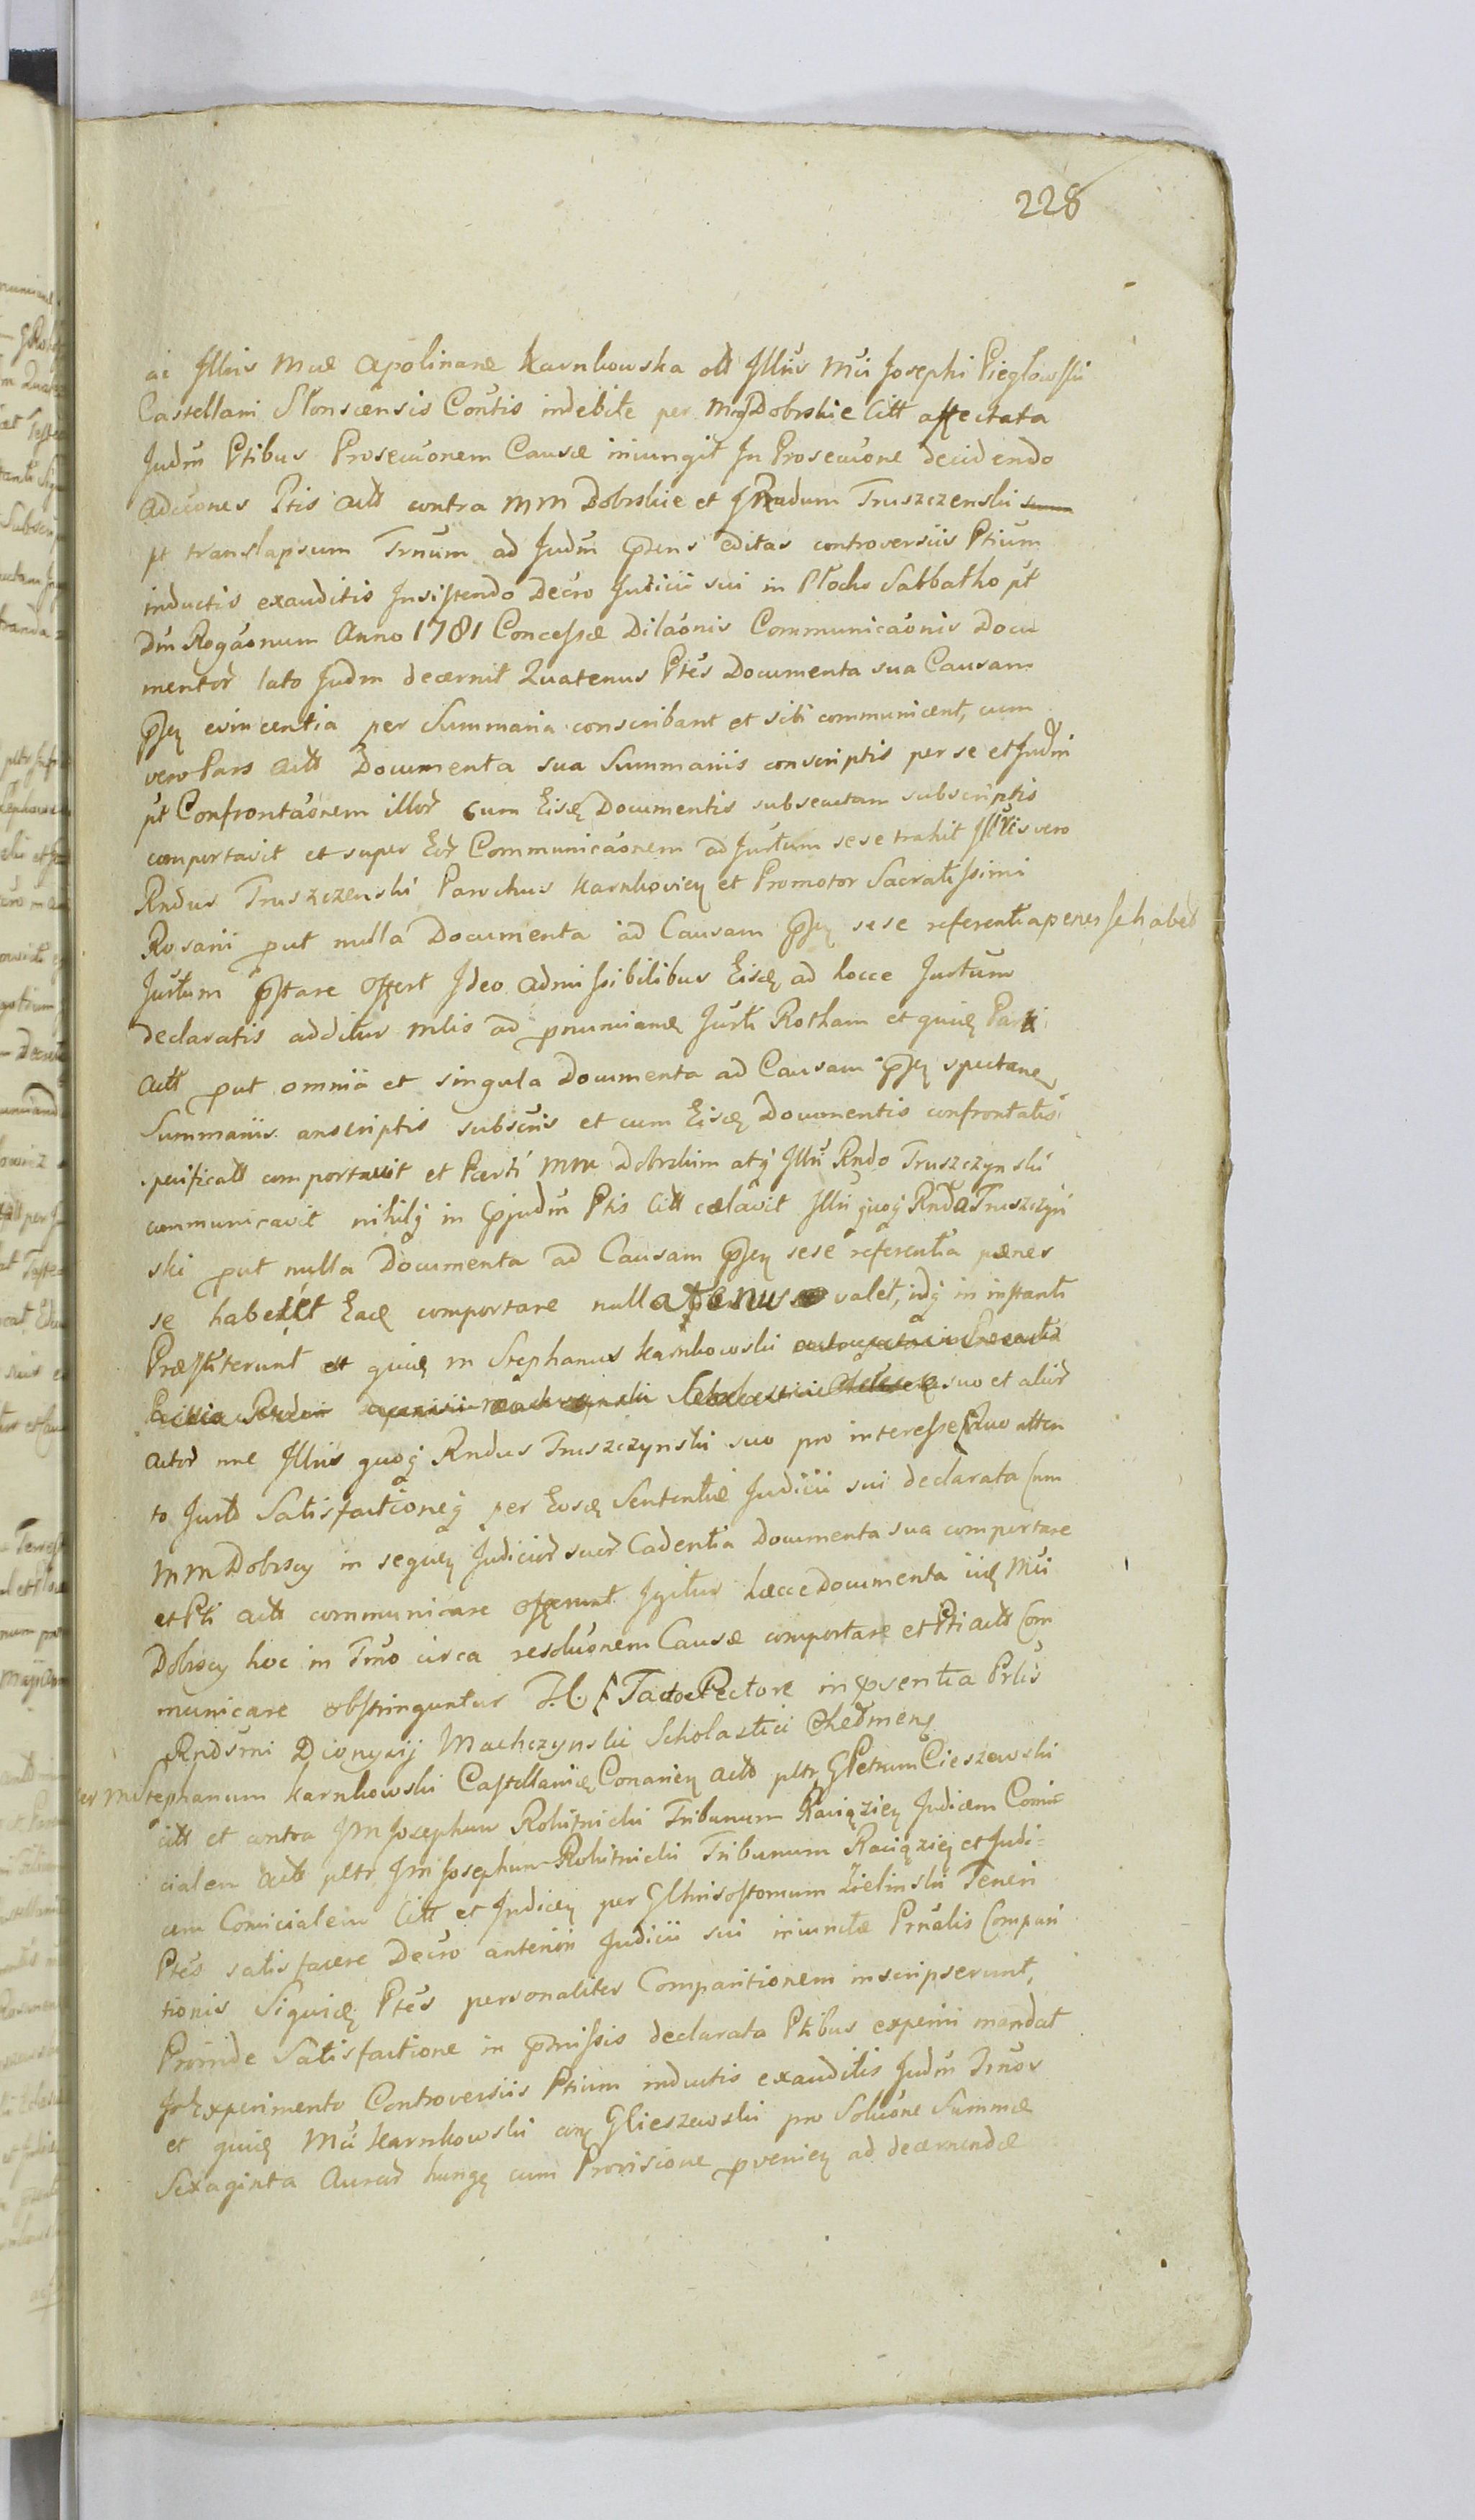 228
ac Illris Mae Apolinarae Karnkowska olt Illris Mci Josephi Pieglowski
Castellani Słonscensis Contis indebite per Mcos Dobrskie Citt affectata
Judm Ptibus Prosecuonem Causae iniungit In Prosecuone decidendo
adcuones Ptis actt contra MM Dobrskie et JRndum Truszczenski
pt translapsum Trnum ad Judm pñens editas controversiis Ptium
inductis exauditis Insistendo Decro Judicii sui in Płocko Sabbatho pt
Dm Rogaonum Anno 1781 Concessae Dilaonis Communicaonis Docu
mentor lato Judm decernit Quatenus Ptes Documenta sua Causam
evincentia per Summaria conscribant et sibi communicent, cum
vero Pars actt Documenta sua Summariis conscriptis per se et Judm
pt Confrontaonem illor cum Eisdem Documentis subsecutam subscriptis
comportavit et super Eor Communicaonem ad Jurtum sese trahit Illris vero
Rndus Truszczenski Parochus Karnkovien et Promotor Sacratissimi
Rosarii put nulla Documenta ad Causam sese referentia penes se habet
Jurtum pstare offert Ideo admissibilibus Eisdem ad hocce Jurtum
declaratis additur mlis ad pnunciandam Jurti Rotham et quidem Parti
actt put omnia et singula Documenta ad Causam spectanem
Summariis conscriptis subscris et cum Eisdem Documentis confrontatis
perificatt comportavit et Parti MM Dobrskim atq Illri Rndo Truszczynski
communicavit nihilq in pjudm Ptis Citt celavit Illri quoq Rnda Truszczyń
ski put nulla Documenta ad Causam sese referentia penes
se habet Eadem comportare nullatenus valet, idq in instanti
Praestiterunt et quidem M Stephanus Karnkowski
suo et alior
actor nne Illris quoq Rndus Truszczynski suo pro interesse Quo atten
to Jurto Satisfactioneq per Eosdem Sententiae Judicii sui declarata Cum
MM Dobrscy in sequen Judicior suor Cadentia Documenta sua comportare
et Pti actt communicare offerunt Igitur haecce Documenta iidem Mci
Dobrscy hoc in Trno circa resoluonem Causae comportare et Pti actt Com
municare obstringuntur T. H. Tacto Pectore in psentia Prlis
Rndsmi Dionysij Machczynski Scholastici Chełmens
er M Stephanum Karnkowski Castellanidem Conarien actt pltr G Petrum Cieszewski
citt et contra JM Josephum Rokitnicki Tribunum Raciązien Judicem Comi=
cialem actt pltr JM Josephum Rokitnicki Tribunum Raciązien et Judi=
cem Comicialem Citt et Judicem per G Chrisostomum Zielinski Teneri
Ptes satisfacere Decro anteriori Judicii sui iniunctae Prnalis Compari
tionis Siquidem Ptes personaliter Comparitionem inscripserunt,
Proinde Satisfactione in pmissis declarata Ptibus experiri mandat
In Experimento Controversiis Ptium inductis exauditis Judm Trnos
et quidem Mci Karnkowski con G Cieszewski pro Soluone Summae
Sexaginta Aureor hung cum Provisione pvenien ad decernendae